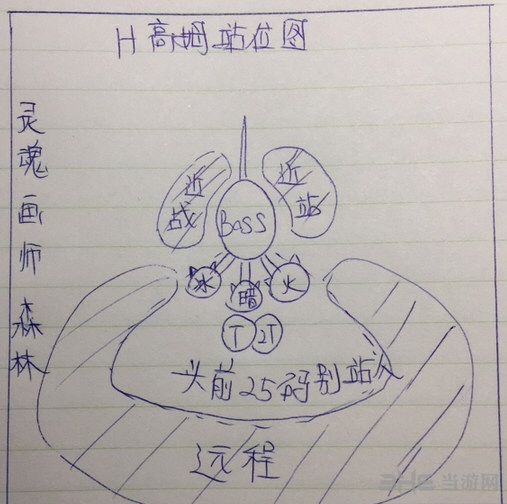 H高姆站位图
灵魂画师 森林
近战
近站
BOSS
冰
暗
火
T
2T
头前25码别站人
远程
当游网